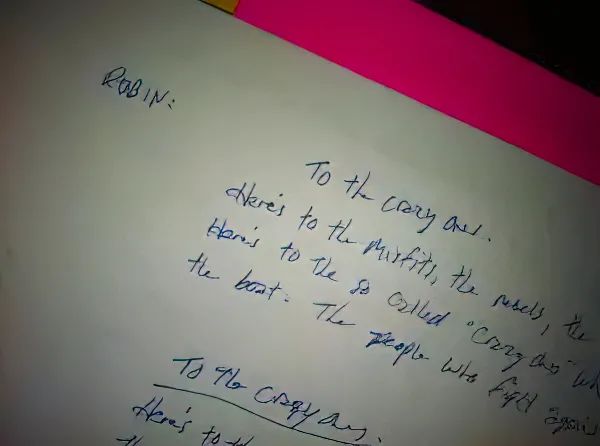 ROBIN:
To the crazy ones.
Here's to the Misfits, the rebels, the
Here's to the so called "Crazy ones" wh
the boat. The people who fight agains
To the Crazy Ones.
Here's to th
th